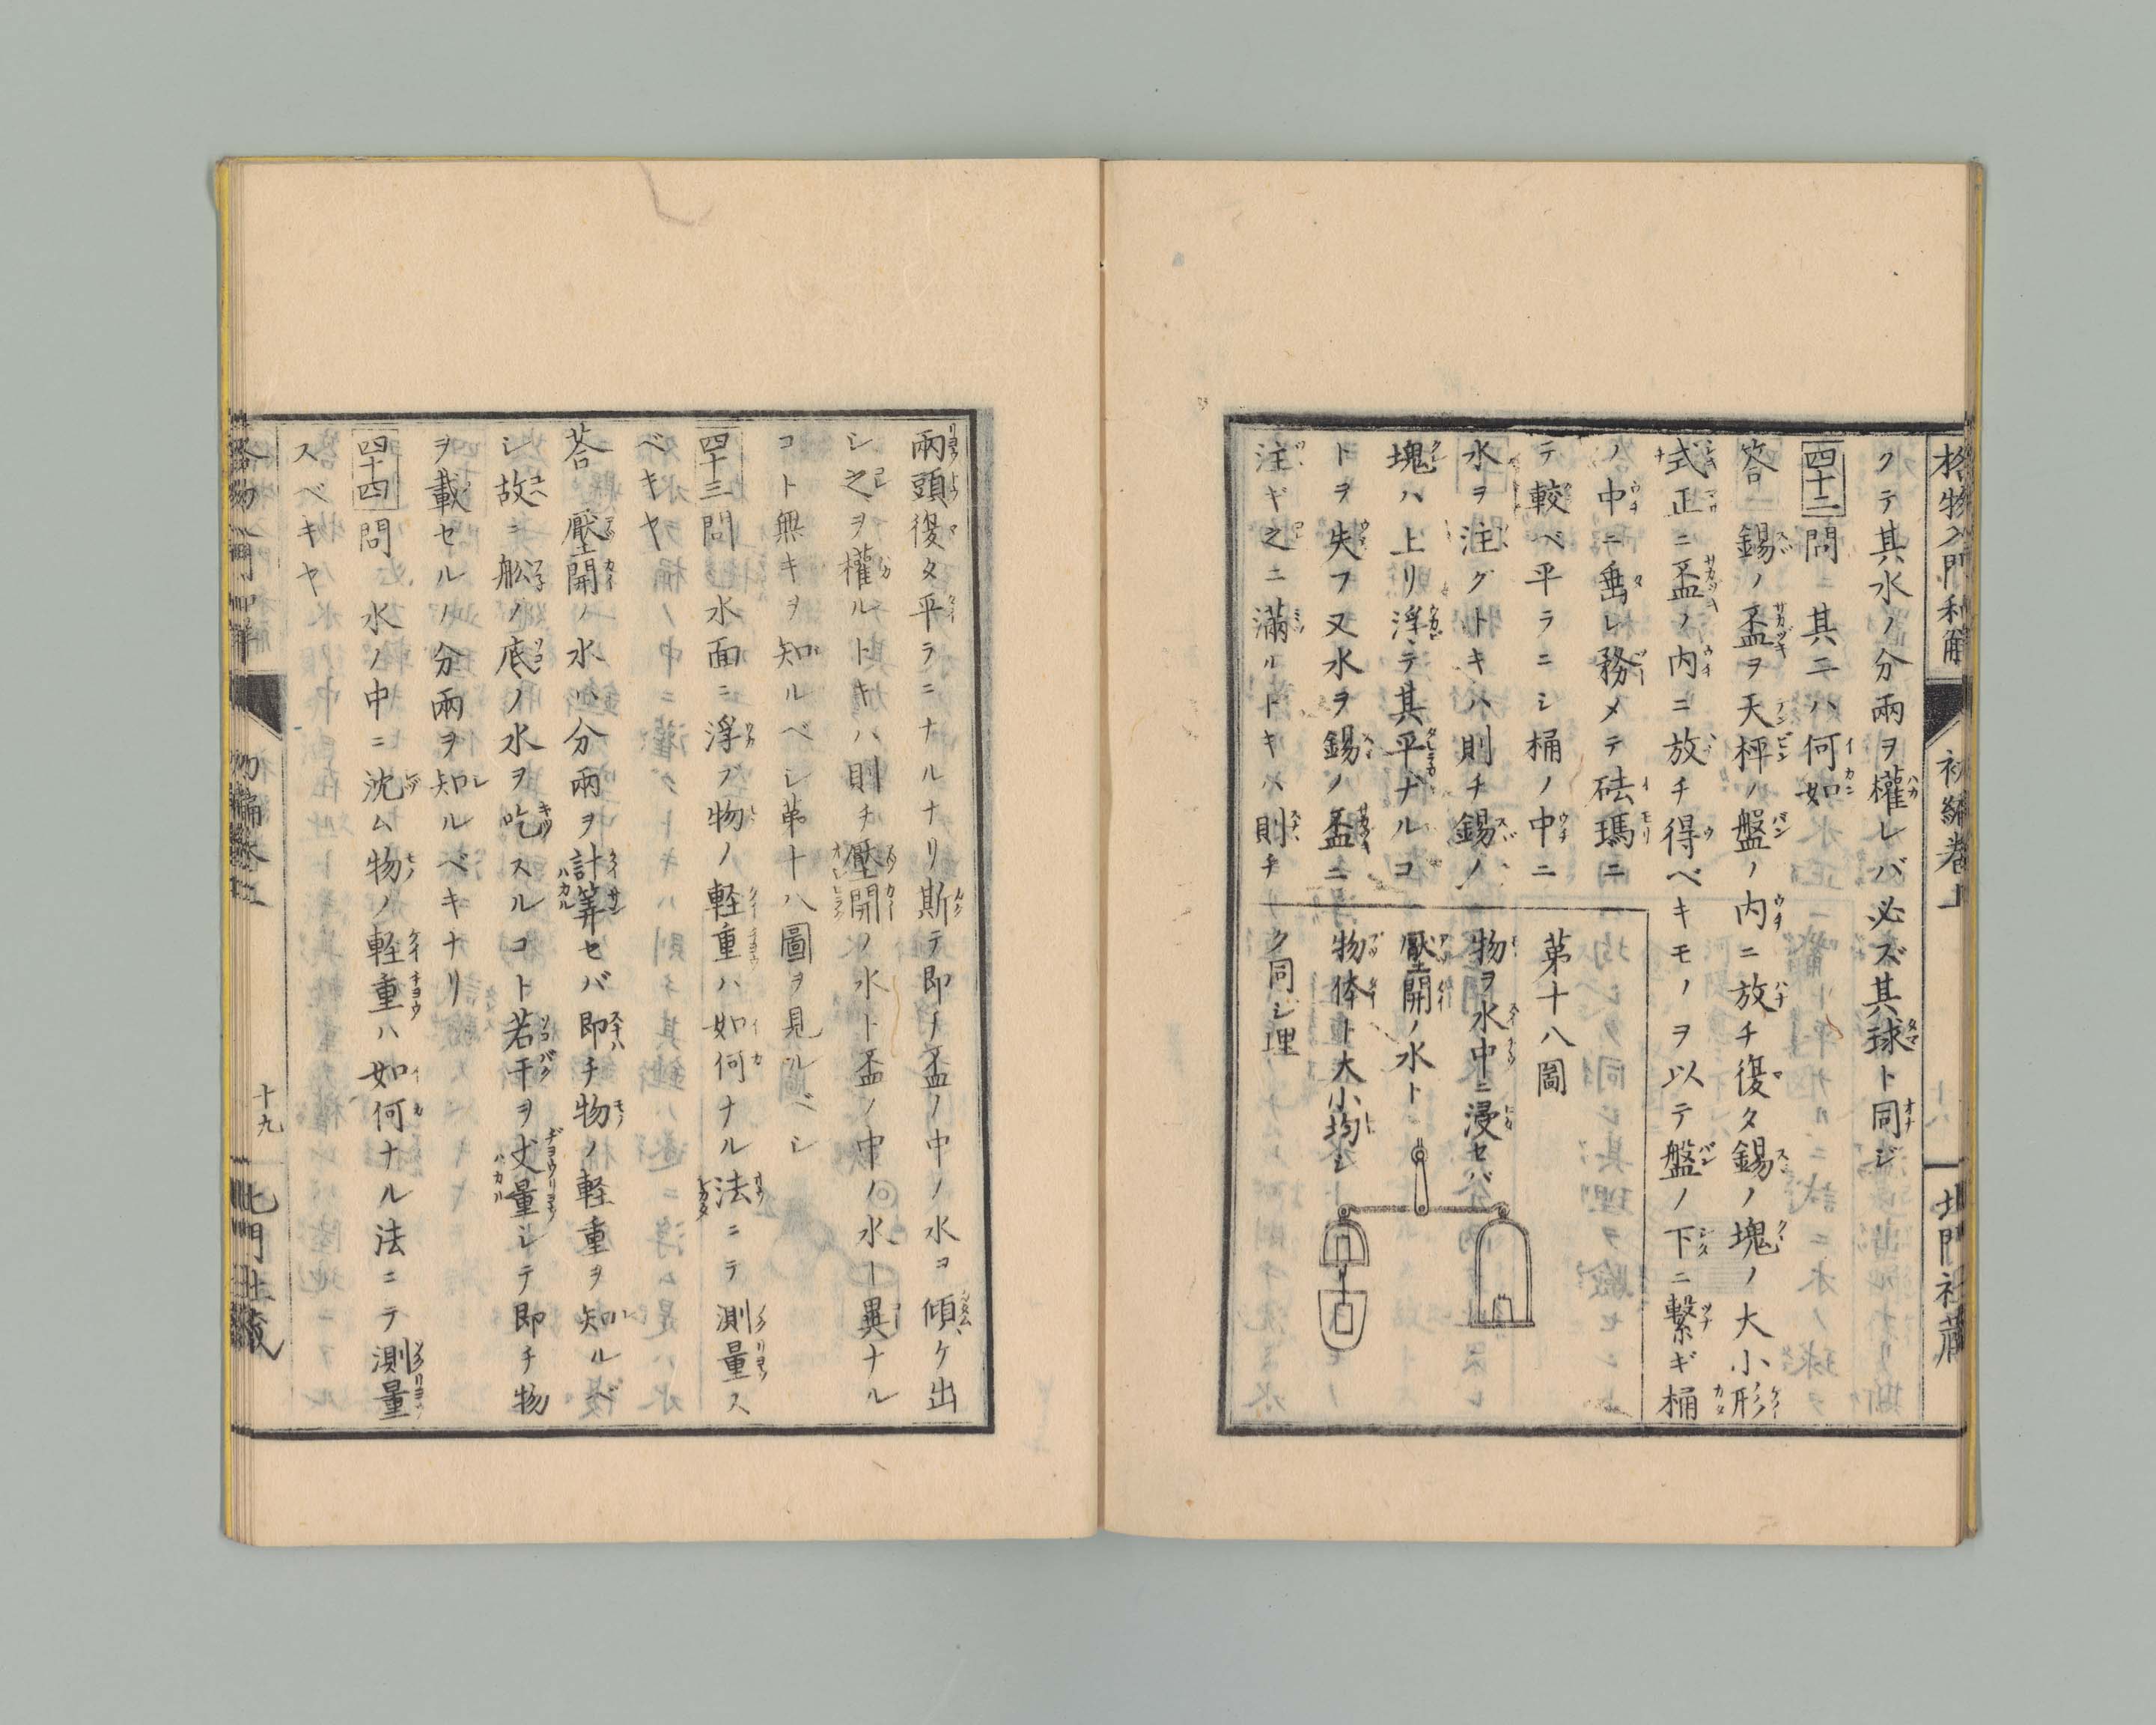 格物入門和解 初編卷上 北門社藏
クテ其水ノ分兩ヲ權レバ必ズ其球ト同ジ
四十二問 其二ハ何如
答 錫ノ盃ヲ天秤ノ盤ノ内ニ放チ復タ錫ノ塊ノ大小形
式正ニ盃ノ内ニ放チ得ベキモノヲ以テ盤ノ下ニ繫ギ桶
ノ中ニ垂レ務メテ砝瑪ニ
テ較ベ平ラニシ桶ノ中ニ
水ヲ注グトキハ則チ錫ノ
塊ハ上リ浮テ其平ナルコ
トヲ失フ又水ヲ錫ノ盃ニ
注ギ之ニ滿ルトキハ則チ
第十八圖
物ヲ水中ニ浸セバ
壓開ノ水ト
物体ト大小均シ
ク同シ理
兩頭復タ平ラニナルナリ斯テ即チ盃ノ中ノ水コ傾ケ出
シ之ヲ權ルトキハ則チ壓開ノ水ト盃ノ中ノ水ト異ナル
コト無キヲ知ルベシ第十八圖ヲ見ルベシ
四十三問 水面ニ浮ブ物ノ軽重ハ如何ナル法ニテ測量ス
ベキヤ
荅 壓開ノ水ハ分兩ヲ計算セバ即チ物ノ軽重ヲ知ルベ
シ故ニ舩ノ底ノ水ヲ吃スルコト若干ヲ丈量シテ即チ物
ヲ載セルノ分兩ヲ知ルベキナリ
四十四問 水ノ中ニ沈ム物ノ軽重ハ如何ナル法ニテ測量
スベキヤ
十九 北門社藏